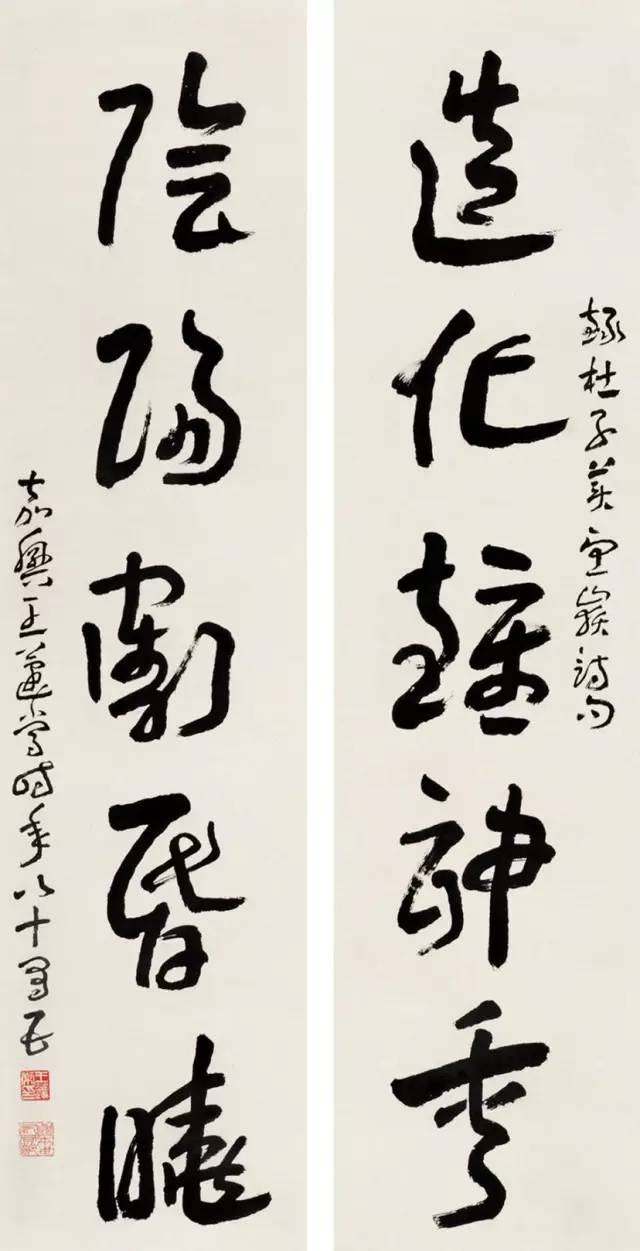 錄杜子美望嶽詩句
造化鍾神秀
陰陽割昏曉
嘉興王蘧常時年八十有五